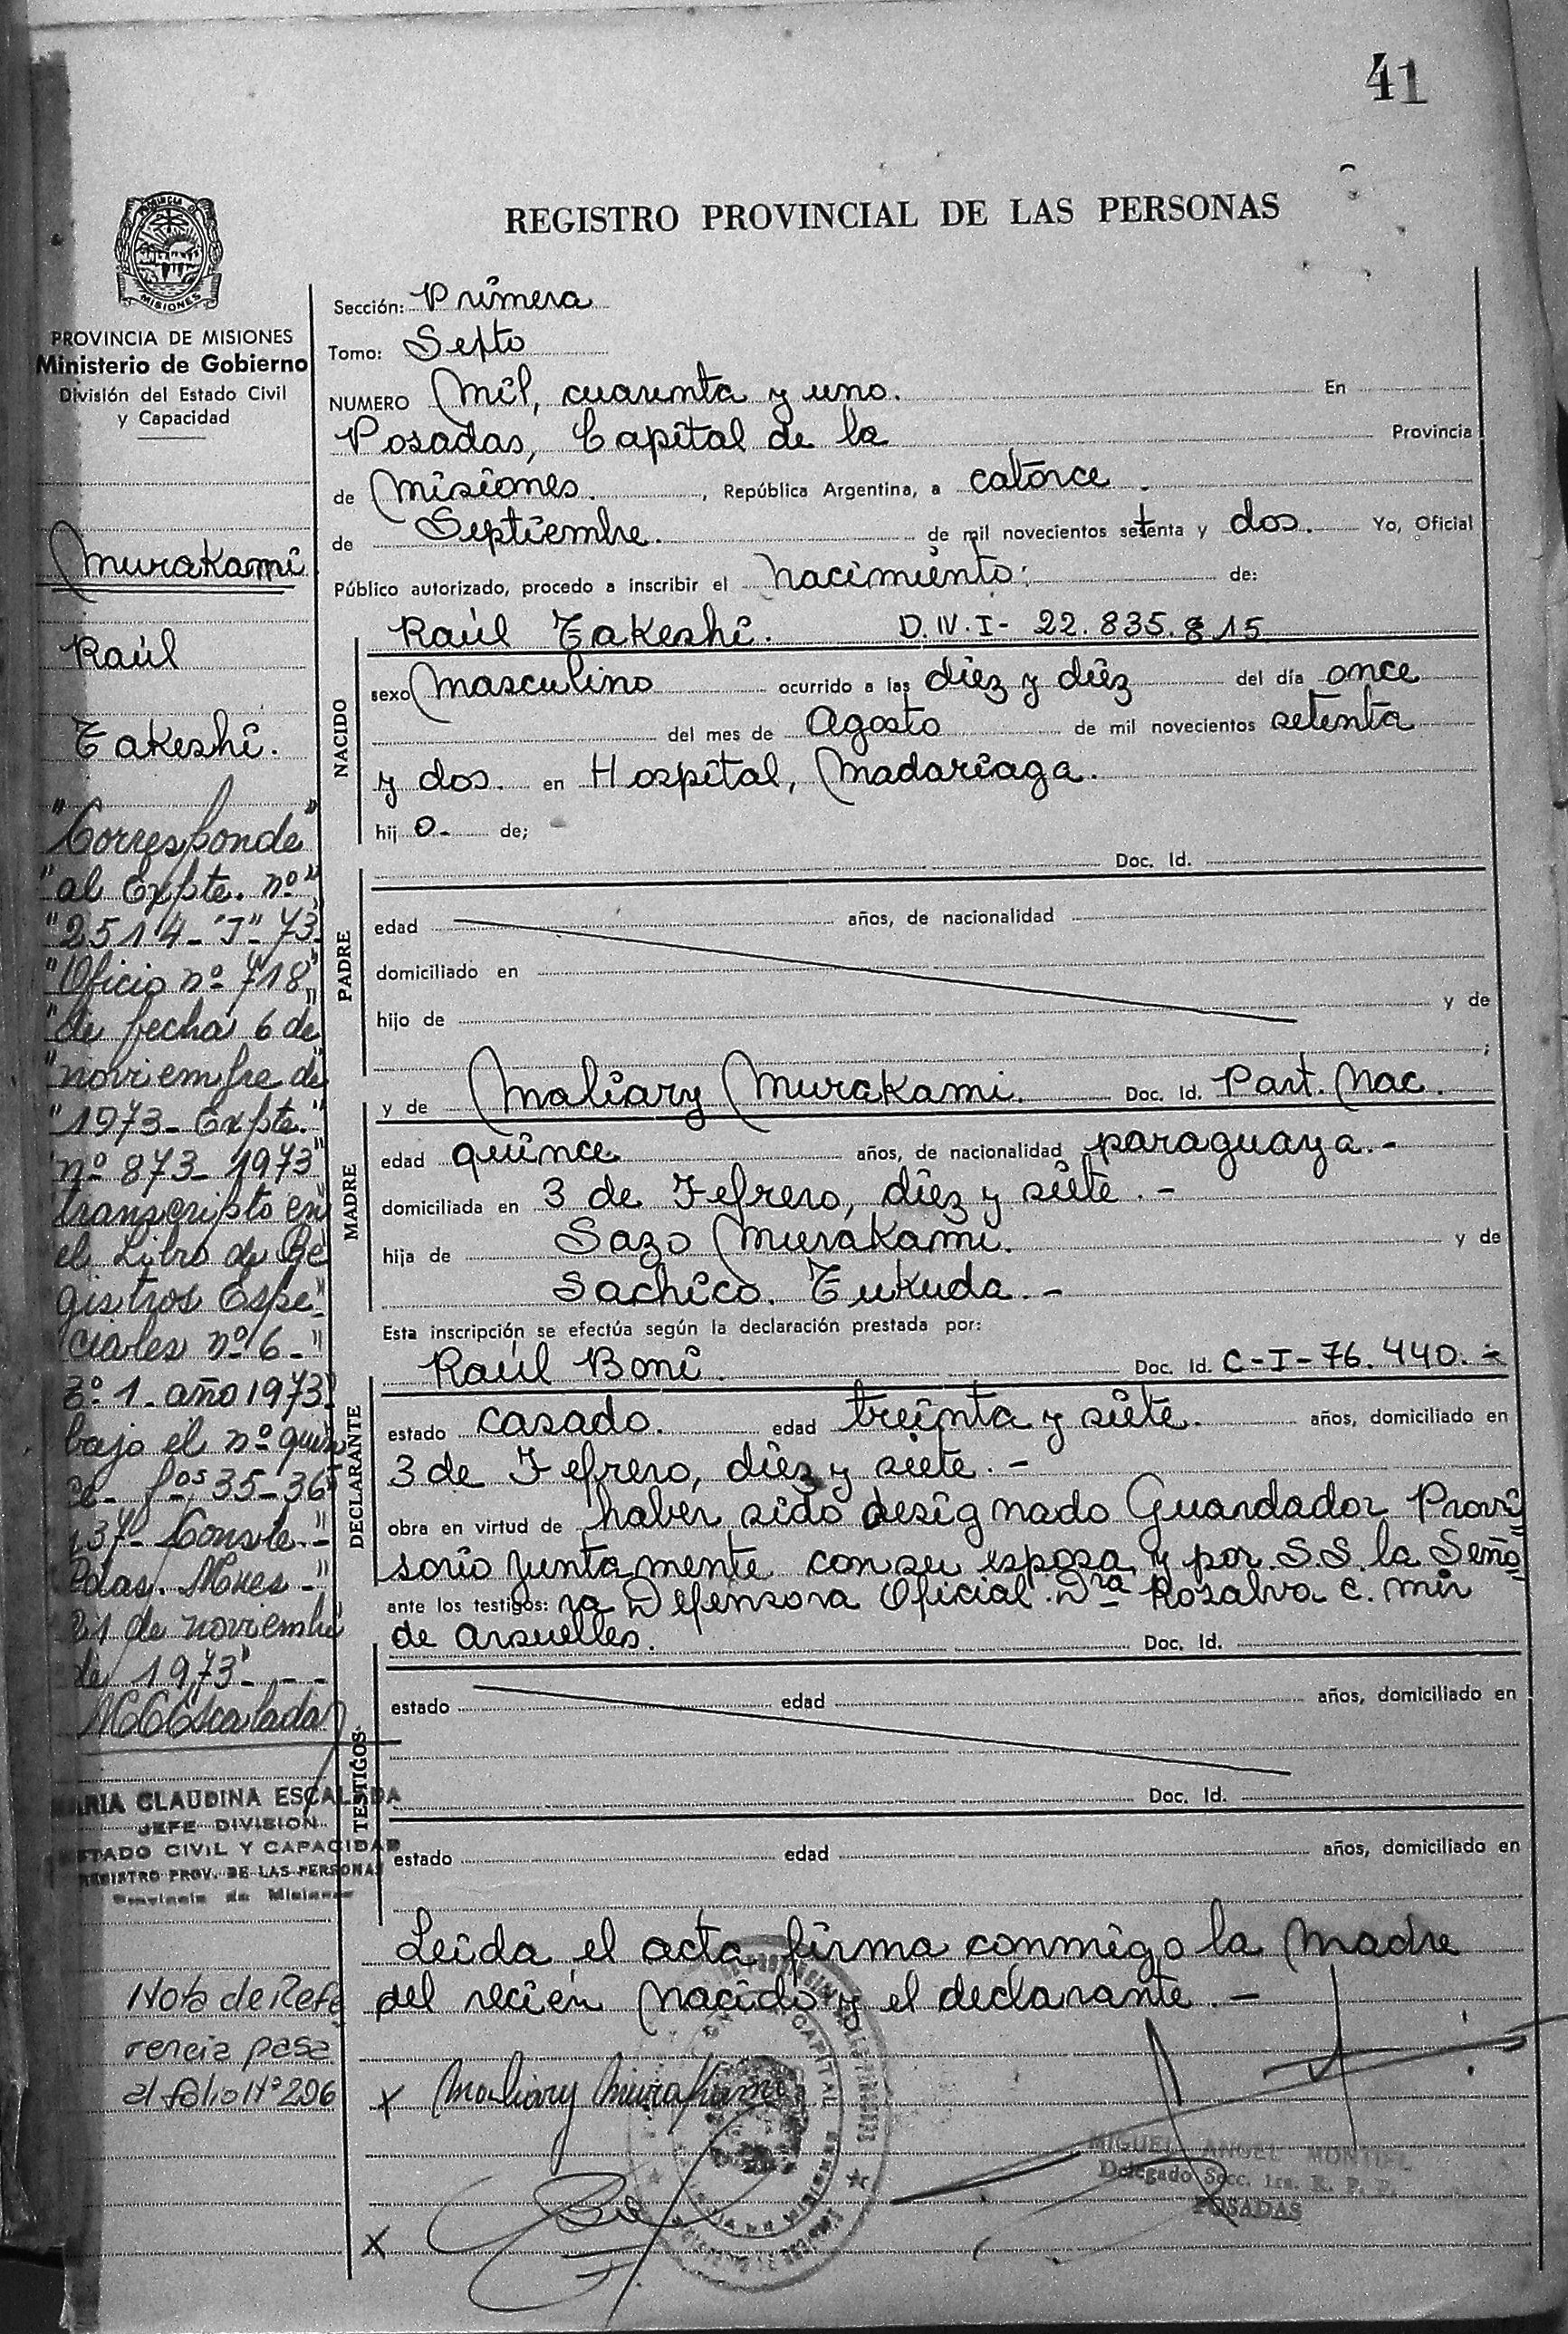 41
REGISTRO PROVINCIAL DE LAS PERSONAS
PROVINCIA DE
MISIONES
PROVINCIA DE MISIONES
Ministerio de Gobierno
División del Estado Civil
y Capacidad
Murakami
Raúl
Takeshi.
"Corresponde"
"al Expte. nº"
"2514-"J"-73
"Oficio nº 718"
"de fecha 6 de
"noviembre de
"1973- Expte."
nº 873-1973"
transcripto en
el Libro de Re
gistros Espe"
ciales nº 6-"
Tº 1- año 1973
bajo el nº quin
ce- fºs 35-36
y 37º Conste.-"
Pdas. Mnes-"
21 de noviembre
de 1973"- - -
MCEscalada
MARIA CLAUDINA ESCALADA
JEFE DIVISION
ESTADO CIVIL Y CAPACIDAD
REGISTRO PROV. DE LAS PERSONAS
Provincia de Misiones
Nota de Refe
rencia pasa
al folio Nº 206
Sección: Primera
Tomo: Septo
NUMERO Mil, cuarenta y uno. En
Posadas, Capital de la Provincia
de Misiones. , República Argentina, a catorce.
de Septiembre. de mil novecientos setenta y dos. Yo, Oficial
Público autorizado, procedo a inscribir el nacimiento: de:
Raúl Takeshi. D.N.I- 22.835.815
NACIDO
sexo Masculino ocurrido a las diez y diez del día once
del mes de Agosto de mil novecientos setenta
y dos. en Hospital, Madariaga.
hij o- de;
Doc. Id.
PADRE
edad años, de nacionalidad
domiciliado en
hijo de y de
;
y de Maliary Murakami. Doc. Id. Part. Nac.
MADRE
edad quince años, de nacionalidad paraguaya.-
domiciliada en 3 de Fefrero, diez y siete.-
hija de Sazo Murakami. y de
Sachico. Tukuda.-
Esta inscripción se efectúa según la declaración prestada por:
Raúl Boni. Doc. Id. C-I-76.440.-
DECLARANTE
estado casado. edad treinta y siete. años, domiciliado en
3 de Fefrero, diez y siete.-
obra en virtud de haber sido designado Guardador Provi
sorio juntamente con su esposa, y por S.S. la Seño
ante los testigos: ra Defensora Oficial. Dra Rosalva C. Mir
de Arguelles. Doc. Id.
TESTIGOS-
estado edad años, domiciliado en
Doc. Id.
estado edad años, domiciliado en
Leida el acta, firma conmigo la Madre
del recién Nacido y el declarante.-
x Maliary Murakami
CAPITAL
x
MIGUEL ANGEL MONTIEL
Delegado Secc. 1ra. R. P. P.
POSADAS